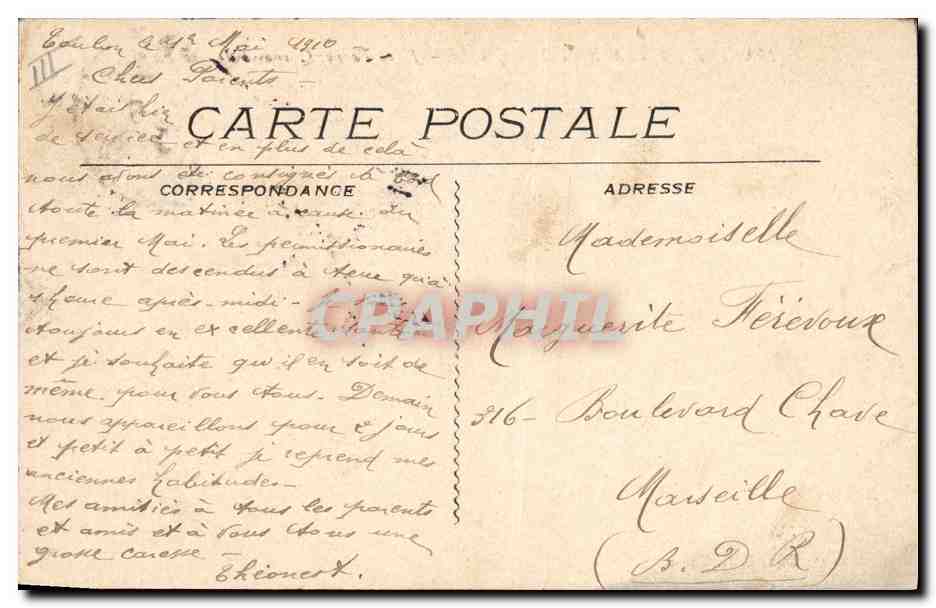 Toulon le 1er Mai 1910
III
Chers Parents -
J'étais hier
CARTE POSTALE
de service et en plus de celà
nous avons été consignés à bord
CORRESPONDANCE
toute la matinée à cause du
premier Mai. Les permissionnaires
ne sont descendus à terre qu'à
heure après-midi -
toujours en excellente santé
et je souhaite qu'il en soit de
même pour vous tous. Demain
nous appareillons pour 2 jours
et petit à petit je reprend mes
anciennes habitudes -
Mes amitiés à tous les parents
et amis et à vous tous une
grosse caresse -
Théonest.
ADRESSE
Mademoiselle
Marguerite Férévoux
316 - Boulevard Chave
Marseille
(B. D. R)
CPAPHIL